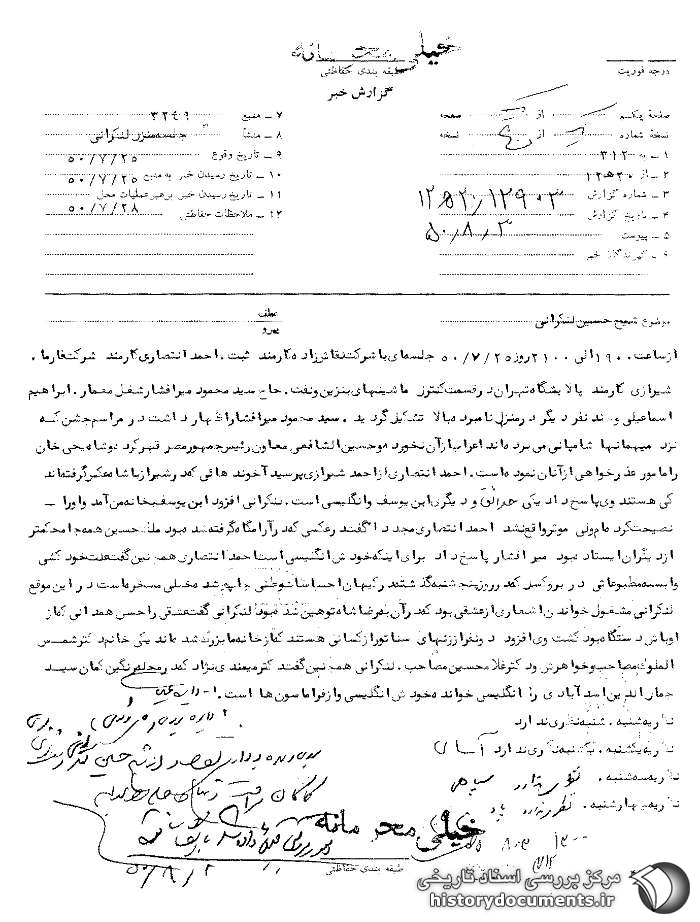 خیلی محرمانه
طبقه بندی حفاظتی
گزارش خبر
درجه فوریت
صفحه یک از یک صفحه
نسخه شماره از نسخه
۱ ـ به ۳۱۲
۲ ـ از ۲۰ ه ۱۲
۳ ـ شماره گزارش ۱۲۹۰۲ / ۲۰ ه ۱۲
۴ ـ تاریخ گزارش ۵۰/۸/۳
۵ ـ پیوست
۶ ـ گیرندگان خبر
۷ ـ منبع ۳۲۴۹
۸ ـ منشأ جلسه منزل لنکرانی
۹ ـ تاریخ وقوع ۵۰/۷/۲۵
۱۰ ـ تاریخ رسیدن خبر به منبع ۵۰/۷/۲۵
۱۱ ـ تاریخ رسیدن خبر برهبر عملیات محل ۵۰/۷/۲۸
۱۲ ـ ملاحظات حفاظتی
موضوع شیخ حسین لنکرانی
عطف
پیرو
از ساعت ۱۹۰۰ الی ۲۱۰۰ روز ۵۰/۷/۲۵ جلسه‌ای با شرکت نقاش زاده کارمند ثبت ، احمد انتصاری کارمند شرکت فارما ،
شیرازی کارمند پالایشگاه تهران در قسمت کنترل ماشینهای بنزین و نفت ، حاج سید محمود میرافشار شغل معمار ، ابراهیم
اسماعیلی و چند نفر دیگر در منزل نامبرده بالا تشکیل گردید . سید محمود میرافشار اظهار داشت در مراسم جشن که
نزد میهمانها شامپانی می برده‌اند اعراب از آن نخورده و حسین الشافعی معاون رئیس جمهور مصر قهر کرده و شاه یحیی خان
را مامور عذر خواهی از آنان نموده است . احمد انتصاری از احمد شیرازی پرسید آخوند هائی که در شیراز با شاه عکس گرفته‌اند
کی هستند وی پاسخ داد یکی و دیگری ابن یوسف و انگلیسی است . لنکرانی افزود ابن یوسف بخانه من آمد و او را ـ
نصیحت کرده‌ام ولی موثر واقع نشد احمد انتصاری مجددا گفت در عکسی که در آرامگاه گرفته شده بود ملک حسین همه جا محکمتر
از دیگران ایستاده بود میرافشار پاسخ داد برای اینکه خودش انگلیسی است احمد انتصاری همچنین گفت علت خودکشی
وابسته مطبوعاتی در بروکسل که در روز پنجشنبه گذشته در کیهان احساسات وطنی چاپ شده خیلی مسخره است در این موقع
لنکرانی مشغول خواندن اشعاری از عشقی بود که در آن به رضا شاه توهین شده بود لنکرانی گفت عشقی را حسن همدانی که از
اوباش دستگاه بود کشت وی افزود دو نفر از زنهای سناتور از کسانی هستند که از خانه ما بزرگ شده‌اند یکی خانم دکتر شمس
الملوک مصاحب و خواهرش و دکتر غلامحسین مصاحب . لنکرانی همچنین گفت دکتر میمندی نژاد که در مجله رنگین کمان سید
جمال الدین اسد آبادی را انگلیسی خوانده خودش انگلیسی و از فراماسون ها است .
نظریه شنبه . شنبه نظری ندارد
نظریه یکشنبه . یکشنبه نظری ندارد آسای
نظریه سه‌شنبه . نظری ندارد سپاهی
نظریه چهارشنبه . نظری ندارد
خیلی محرمانه
طبقه بندی حفاظتی
۵۰/۸/۲
مرکز بررسی اسناد تاریخی
historydocuments.ir